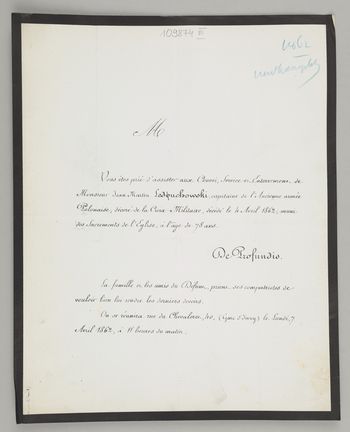 109874 III
1862
M
Vous êtes prié d'assister aux Convoi, Service et Enterrement, de
Monsieur Jean Martin Ledóchowski, capitaine de l'Ancienne armée
Polonaise, décoré de la Croix Militaire, décédé le 4 Avril 1862, muni
des Sacrements de l'Eglise, à l'âge de 78 ans.
De Profundis.
La famille et les amis du Défunt, prient ses compatriotes de
vouloir bien lui rendre les derniers devoirs.
On se réunira rue du Chevaleret, 40, (gare d'Ivry) le Lundi, 7
Avril 1862, à 11 heures du matin.